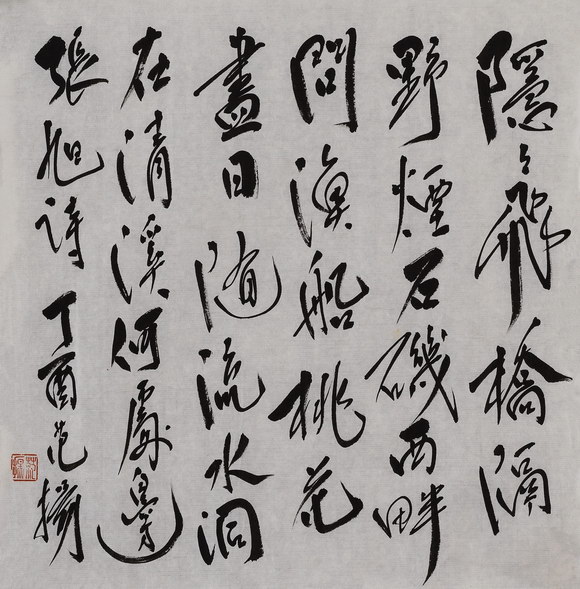 隱々飛橋隔
野煙石磯西畔
問漁船桃花
盡日随流水洞
在清溪何處邊
張旭詩丁酉范揚